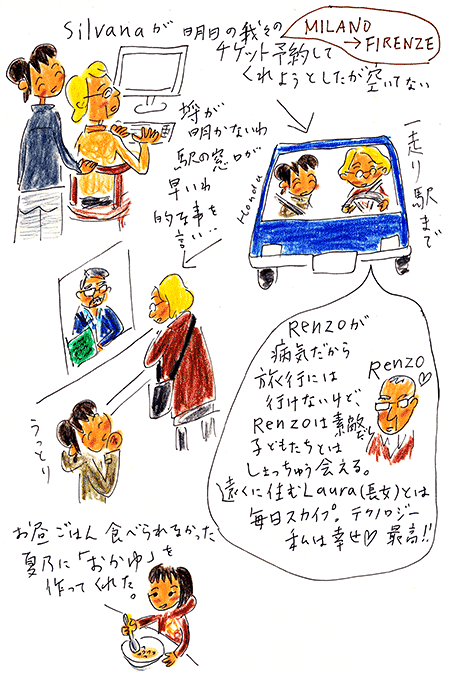 Silvanaが 明日の我々の
MILANO
→FIRENZE
チケット予約して
くれようとしたが空いてない
埒が
明かないわ
駅の窓口が
早いわ
的な事を
言い…
一走り駅まで
Honda
うっとり
Renzoが
病気だから
旅行には
行けないけど、
Renzoは素敵だし
子どもたちとは
しょっちゅう会える。
遠くに住むLaura(長女)とは
毎日スカイプ。テクノロジー
私は幸せ♡ 最高!!
Renzo
♡
お昼ごはん食べられなかった
夏乃に「おかゆ」を
作ってくれた。